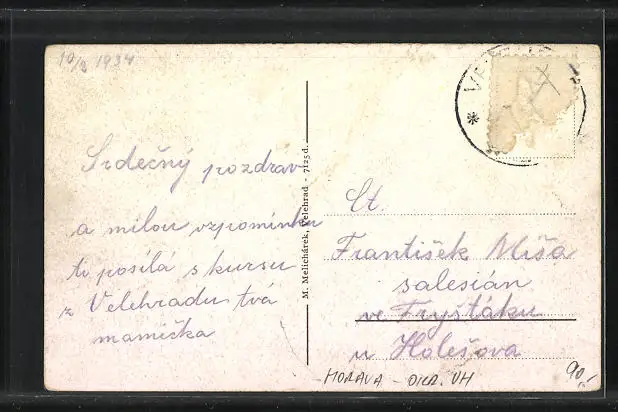 10/8 1934
Srdečný pozdrav
a milou vzpomínku
ti posílá s kursu
z Velehradu tvá
mamička
M. Melichárek, Velehrad - 7125 d.
Ct.
František Míša
salesián
ve Fryštáku
u Holešova
MORAVA - OKR. UH
90,-